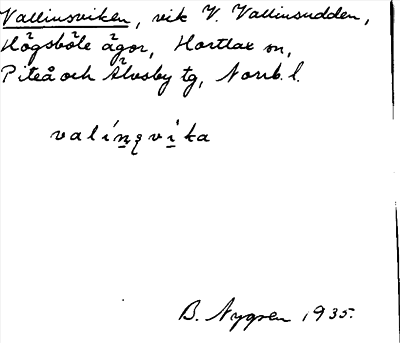 Vallinsviken, vik V. Vallinsudden,
Högsböle ägor, Hortlax sn,
Piteå och Älvsby tg, Norrb. l.
B. Nygren 1935.